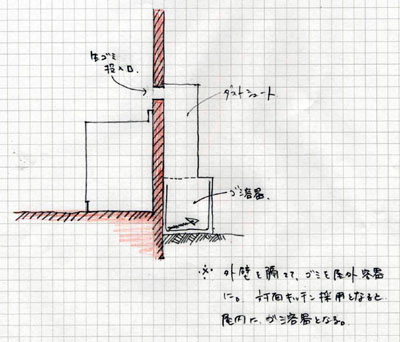 生ゴミ
投入口.
ダストシュート
ゴミ容器.
※ 外壁を隔てて、ゴミを屋外容器
に。対面キッチン採用となると
屋内に、ゴミ容器となる。